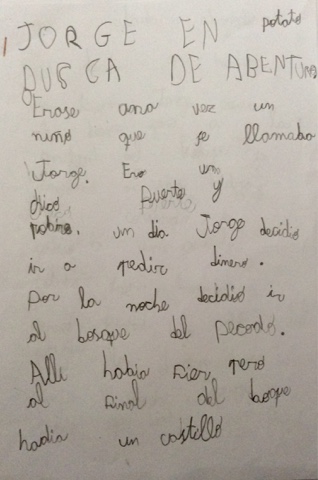 potato
JORGE EN
BUSCA DE ABENTURA
Erase ana vez un
niño que se llamaba
Jorge. Ero un
chico puerte y
pobre. un dia Jorge decidio
ir a pedir dinero.
Por la noche decidio ir
al bosque del pecado.
Alli habia pero
al final del boqe
hadia un castello